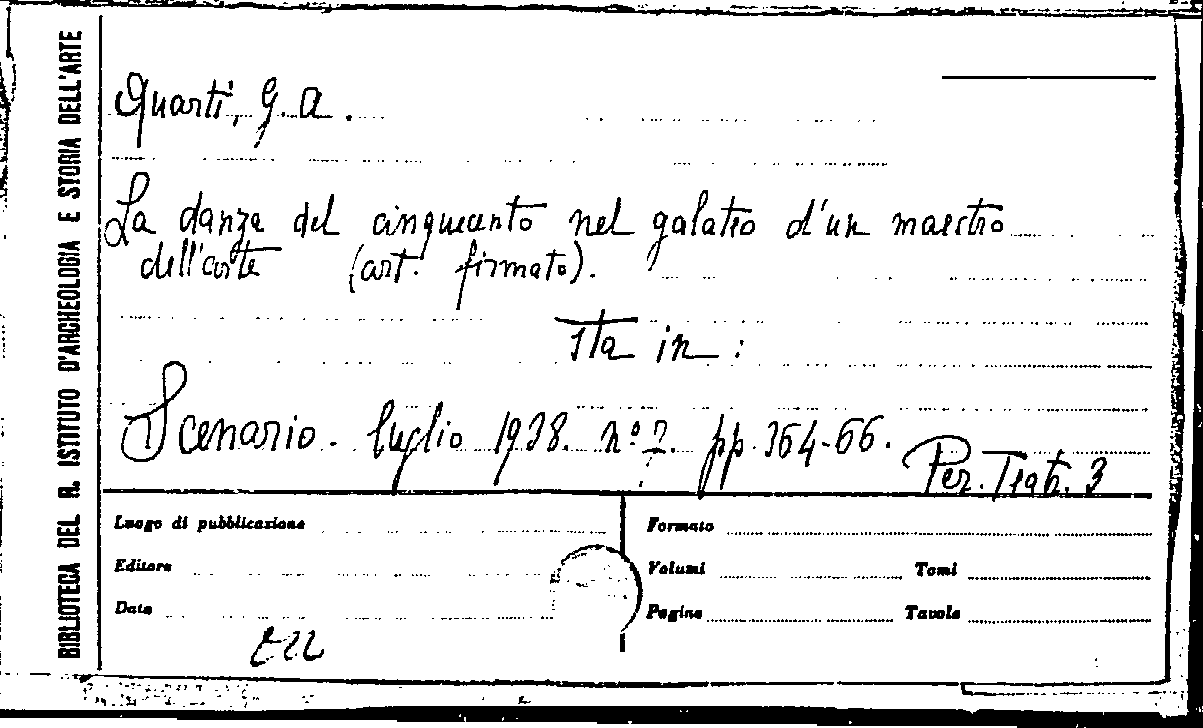 BIBLIOTECA DEL R. ISTITUTO D'ARCHEOLOGIA E STORIA DELL'ARTE
Quarti, G. A.
La danza del cinquecento nel galateo d'un maestro
dell'arte (art. firmato).
Sta in:
Scenario. luglio 1938. nº 7. pp. 364-66.
Per. Teatr. 3
Luogo di pubblicazione
Formato
Editore
Volumi Tomi
Data
Pagine Tavole